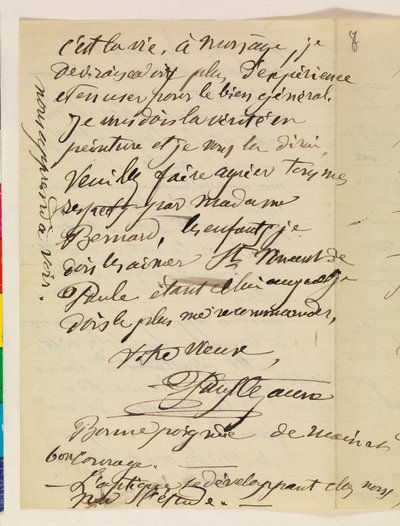 c'est la vie, à mon âge, je
devrais avoir plus d'expérience
et en user pour le bien général.
Je vous dois la vérité en
peinture et je vous la dirai.
Veuillez faire agréer tous mes
respects par madame
Bernard, les enfants, je
dois les aimer St Vincent de
Paule étant celui auquel je
dois le plus me recommander,
votre vieux,
Paul Cezanne
Bonne poignée de main et
bon courage.
L'optique, se développant chez nous
par l'étude.
nous apprend à voir.
8